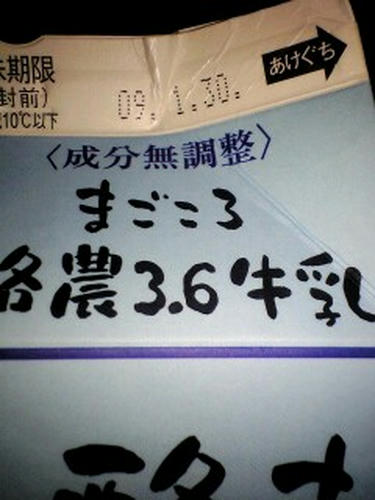 味期限
あけぐち
封前）
09. 1.30.
10℃以下
〈成分無調整〉
まごころ
酪農3.6牛乳